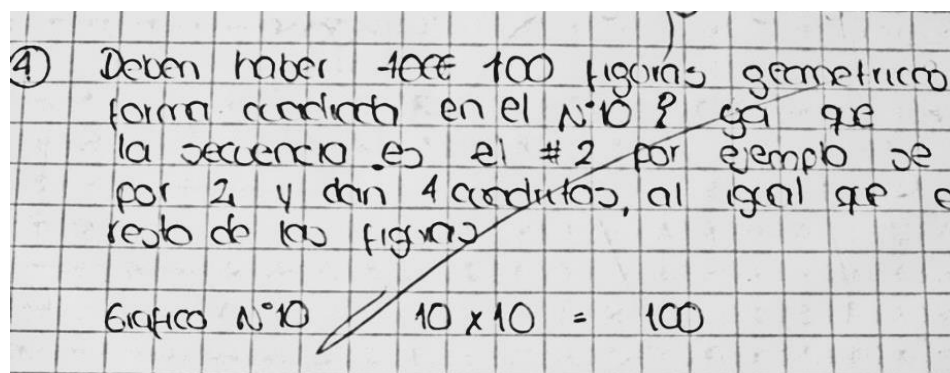 ④ Deben haber 100 figuras geometricas
forma cuadrada en el N°10 ? ya que
la secuencia es el #2 por ejemplo se
por 2 y dan 4 cuadritos, al igual que e
resto de las figuras
Grafico N°10 10 x 10 = 100